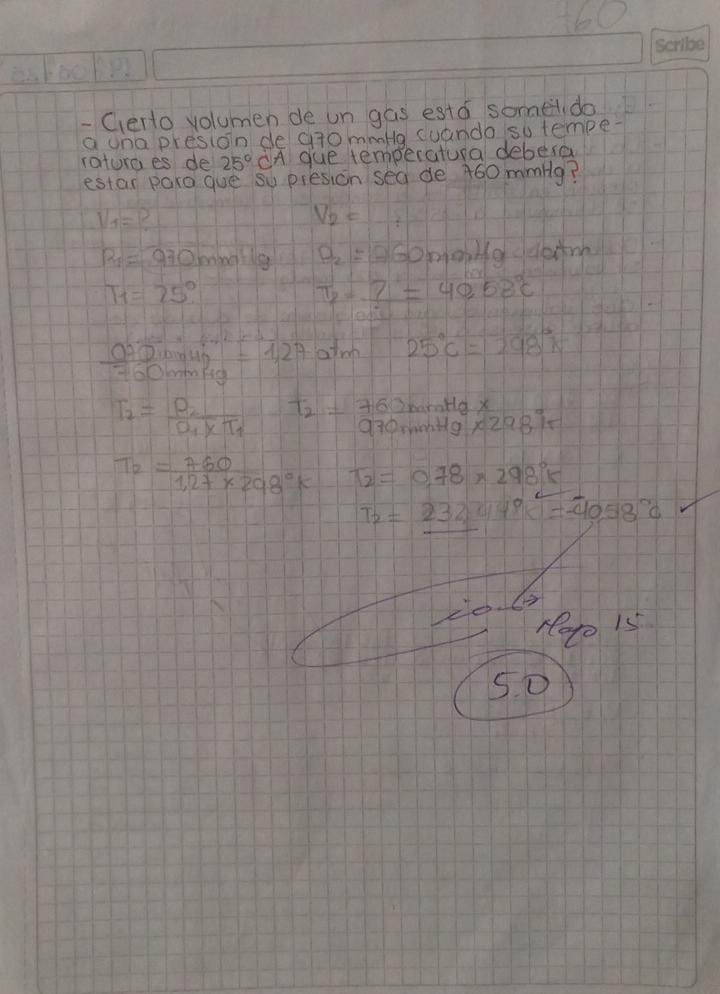 760
Scribe
- Cierto volumen de un gas está sometido
a una presión de 970 mmHg cuando su tempe-
ratura es de 25° C A que temperatura debera
estar para que su presión sea de 760 mmHg?
V1 = ? V2 =
P1 = 970 mmHg P2 = 960 mmHg
T1 = 25° T2 = ? = 40,58°C
970 mmHg / 760 mmHg = 1,27 atm 25°C = 298°K
T2 = P2 / P1 x T1 T2 = 760 mmHg x / 970 mmHg x 298°K
T2 = 760 / 1,27 x 298°K T2 = 0,78 x 298°K
T2 = 232,44°K = -40,58°C
Mayo 15
5.0